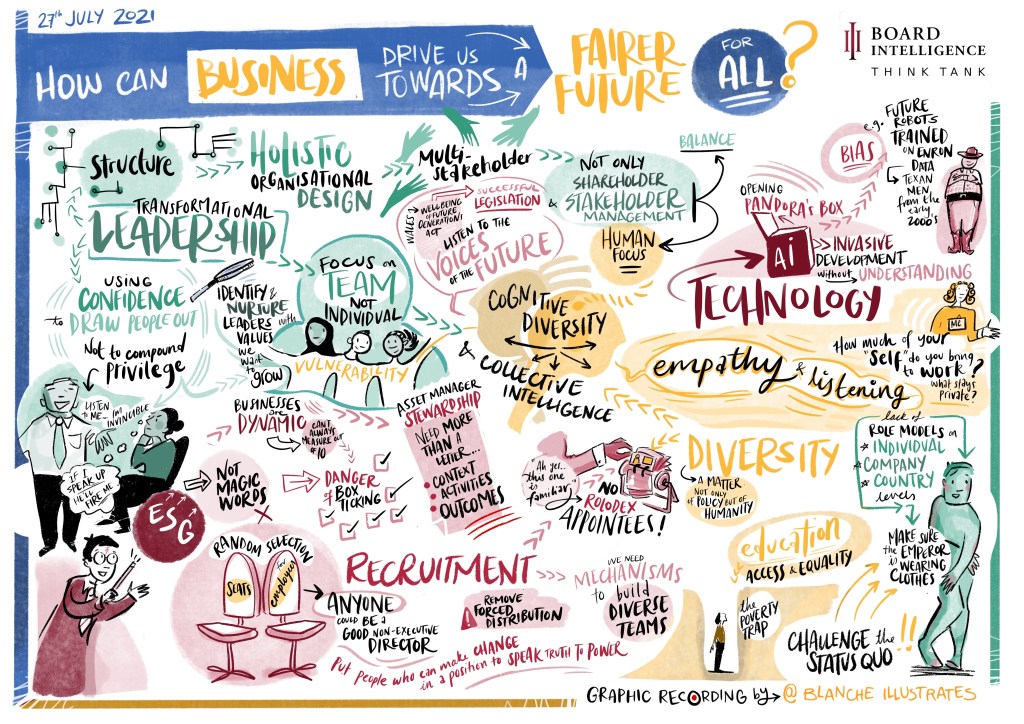 27th JULY 2021
HOW CAN BUSINESS DRIVE US TOWARDS A FAIRER FUTURE FOR ALL?
BOARD
INTELLIGENCE
THINK TANK
Structure
HOLISTIC
ORGANISATIONAL
DESIGN
MULTI-
Stakeholder
NOT ONLY
SHAREHOLDER
& STAKEHOLDER
MANAGEMENT
BALANCE
HUMAN
FOCUS
WALES
WELLBEING
OF FUTURE
GENERATIONS
ACT
SUCCESSFUL
LEGISLATION
LISTEN TO THE
VOICES
OF THE FUTURE
BIAS
e.g. FUTURE
ROBOTS
TRAINED
ON ENRON
DATA
TEXAN
MEN
from the
early
2000's
OPENING
PANDORA'S BOX
AI
INVASIVE
DEVELOPMENT
without UNDERSTANDING
TECHNOLOGY
TRANSFORMATIONAL
LEADERSHIP
USING
CONFIDENCE
to DRAW PEOPLE OUT
Not to compound
privilege
IDENTIFY &
NURTURE
LEADERS with
VALUES
we
want
to grow
FOCUS on
TEAM
NOT
INDIVIDUAL
VULNERABILITY
COGNITIVE
DIVERSITY
& COLLECTIVE
INTELLIGENCE
empathy & listening
ME
How much of your
"self" do you bring
to work?
what stays
private?
LISTEN
TO ME... I'M
INVINCIBLE
IF I
SPEAK UP
HE'LL
FIRE ME
BUSINESSES
are
DYNAMIC
CAN'T
ALWAYS
MEASURE out of
10
ASSET MANAGER
STEWARDSHIP
NEED MORE
THAN A
LETTER...
CONTEXT
ACTIVITIES
OUTCOMES
ESG
NOT
MAGIC
WORDS
DANGER
of BOX
TICKING
Ah yes...
this one
is
familiar
NO
ROLODEX
APPOINTEES!
DIVERSITY
A MATTER
NOT ONLY
OF POLICY BUT OF
HUMANITY
lack of
ROLE MODELS on
* INDIVIDUAL
* COMPANY
* COUNTRY
levels
MAKE SURE
the EMPEROR
is WEARING
CLOTHES
education
ACCESS & EQUALITY
the
POVERTY
TRAP
CHALLENGE the
STATUS QUO!!
RANDOM SELECTION
SEATS
for
employees
ANYONE
COULD BE A
GOOD NON-EXECUTIVE
DIRECTOR
RECRUITMENT
REMOVE
FORCED
DISTRIBUTION
WE NEED
MECHANISMS
to build
DIVERSE
TEAMS
Put people who can make CHANGE
in a position to SPEAK TRUTH TO POWER
GRAPHIC RECORDING by @ BLANCHE ILLUSTRATES